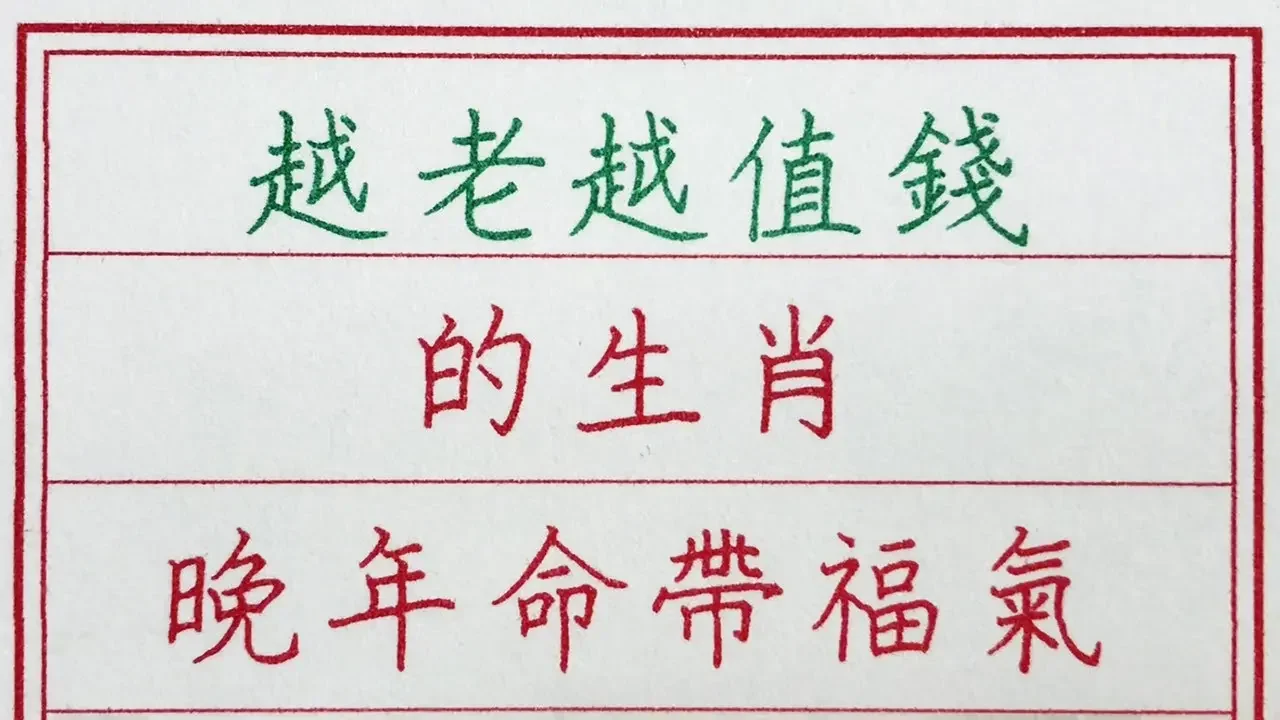 越老越值錢
的生肖
晚年命帶福氣